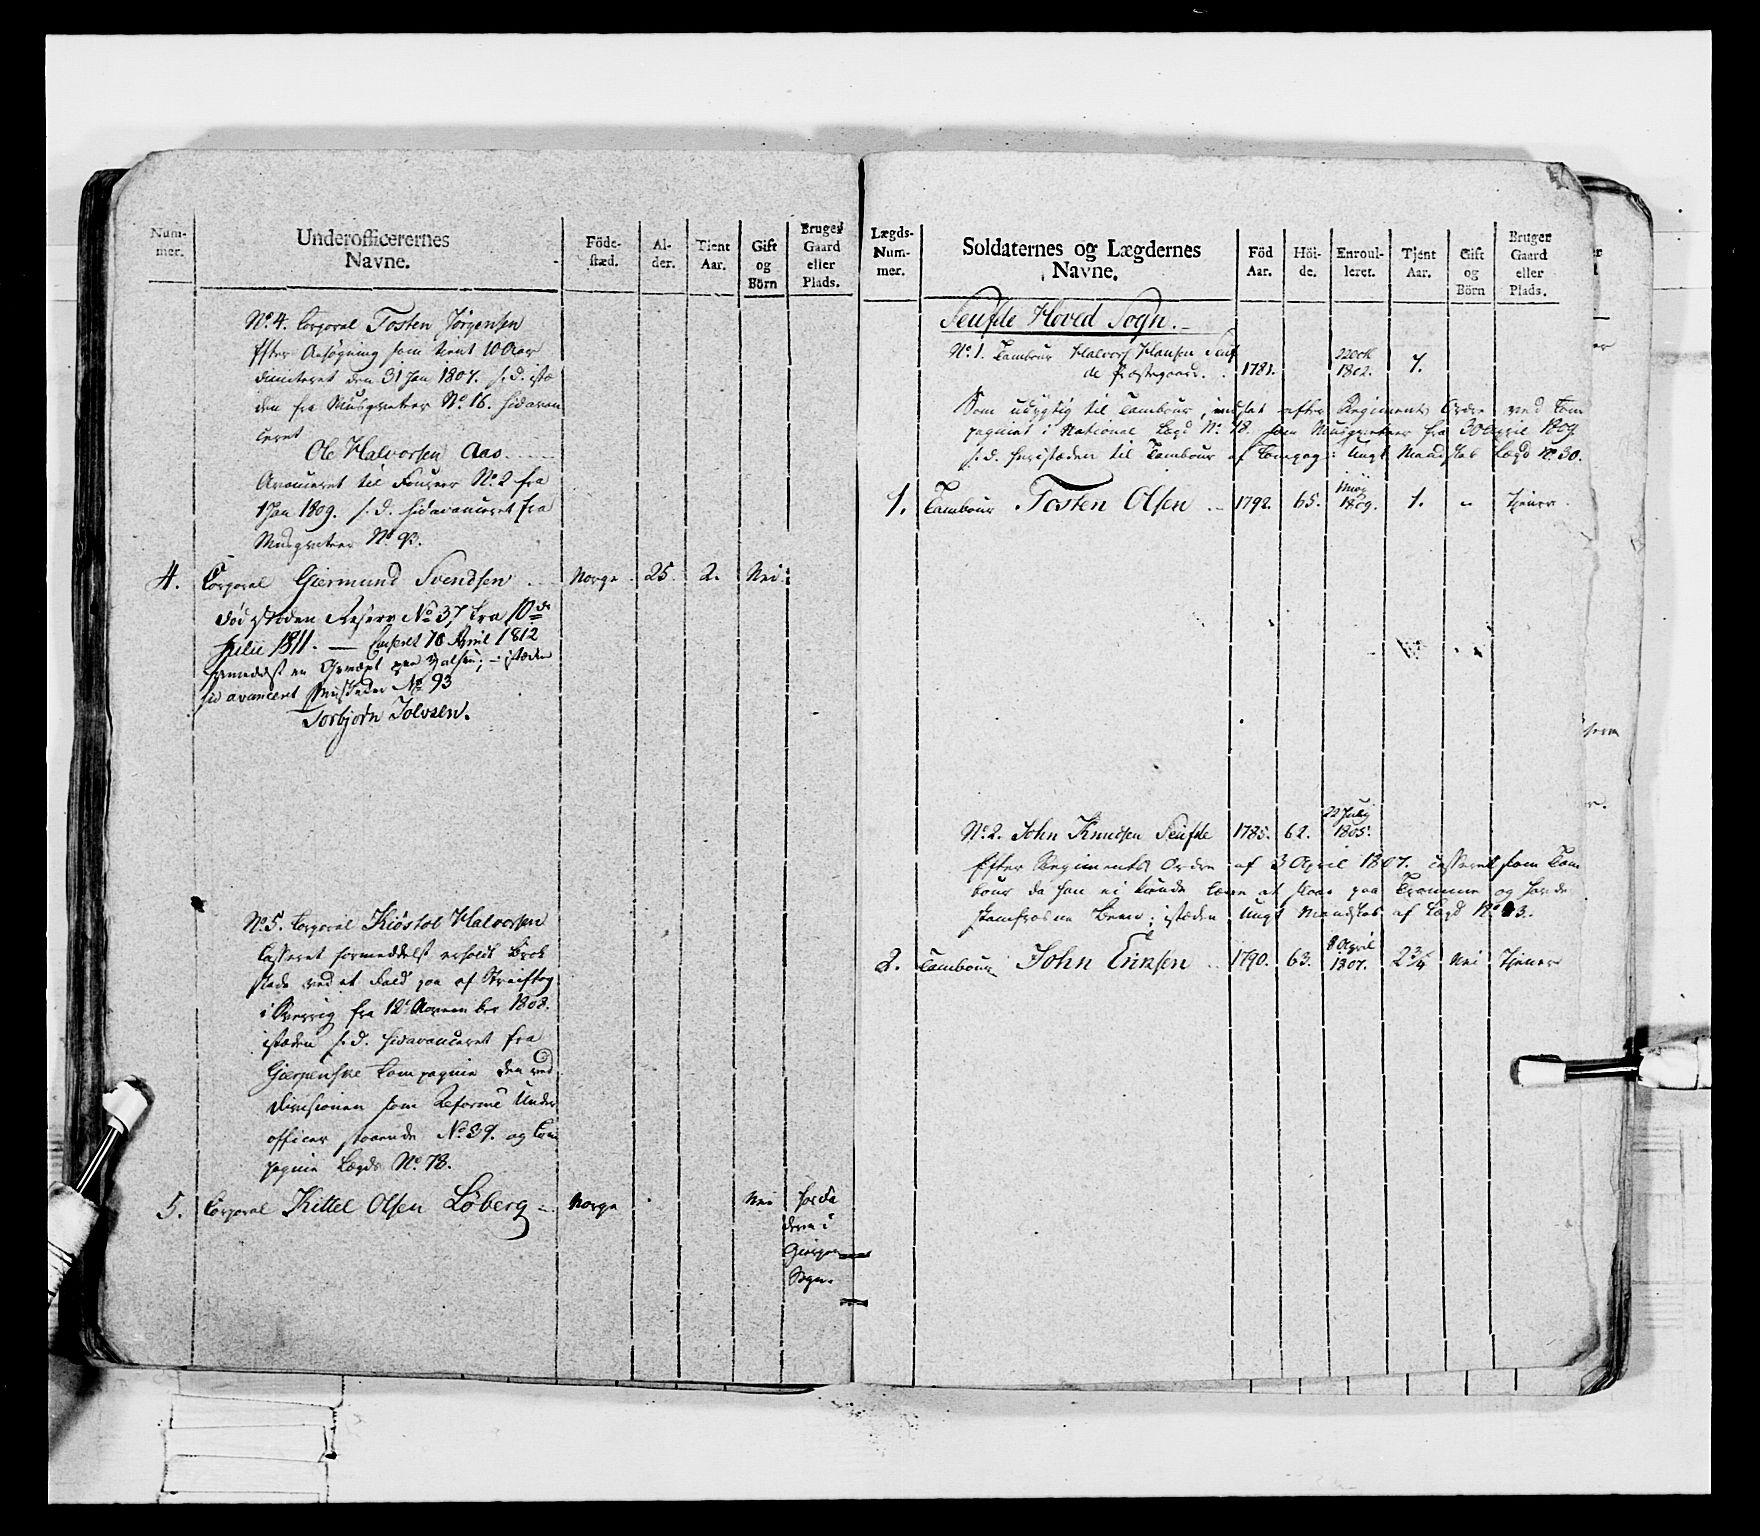 Num-
mer.
Underofficerernes
Navne.
Föde-
stæd.
Al-
der.
Tient
Aar.
Gift
og
Börn
Bruger
Gaard
eller
Plads.
No. 4. Corporal Tosten Jørgensen
Efter Ansøgning som tient 10 Aar
dimiteret den 31 Jan 1807. s. d. istæ
den fra Musqueteer No. 16. hidavan
ceret
Ole Halvorsen Aas
Avanceret til Foureer No. 2 fra
1 Jan 1809. s. d. hidavanceret fra
Musqueteer No. 93.
4. Corporal Giermund Svendsen Norge 25 2. Nei
død istæden Reserv No. 37 fra 10de
Julii 1811. — Casseret 10 April 1812
formedelst en istæden
hid avanceret No. 93
Torbjørn Jolvsen.
No. 5. Corporal Kiøstol Halvorsen
Casseret formedelst erholdt Brok
skade ved et Fald paa af Streiftog
i Sverrig fra 12te November 1808.
istæden s. d. hidavanceret fra
Gierpenske Compagnie den ved
Divisionen som Reformé Under
officer staaende No. 39. og Com
pagnie Lægds No. 78.
5. Corporal Kittel Olsen Löberg Norge Nei
deren i
Gierpen
Sogn.
Lægds-
Num-
mer.
Soldaternes og Lægdernes
Navne.
Föd
Aar.
Höi-
de.
Enroul-
leret.
Tjent
Aar.
Gift
og
Börn
Bruger
Gaard
eller
Plads.
Seufde Hoved Sogn.
No. 1. Tambour Halvors Hansen Seuf
de Præstegaard. 1781. 1802. 7.
Som udygtig til Tambour, indsat efter Regiments Ordre ved Com
pagniet i National Lægd No. 48. som Musqueteer fra 30 April 1809
s. d. hidistæden til Tambour af Compag: Ungt Mandskab Lægd No. 30.
1. Tambour Tosten Olsen 1792. 65. 1 May 1809. 1. " Tjener
No. 2. John Knudsen Seufde 1785. 62. 22 July 1805.
Efter Regiments Ordre af 3 April 1807. casseret som Tam
bour da han ei kunde lære at slaae paa Tromme og havde
Been; istæden Ungt Mandskab af Lægd No. 13.
2. Tambour John Ericksen 1790. 63. 8 April 1807. 2¾ Nei Tjener